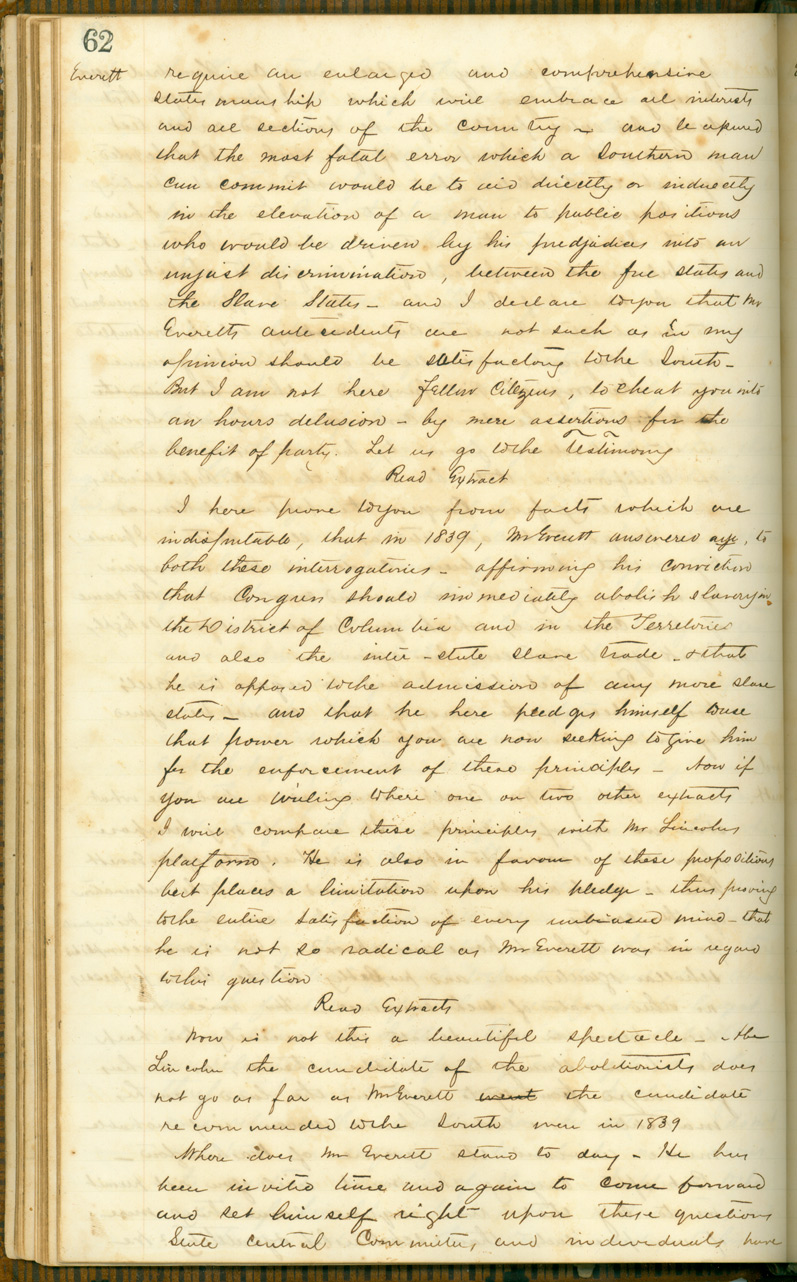 62
Everett require an enlarged and comprehensive
statesmanship which will embrace all interests
and all sections of the country – and be assured
that the most fatal error which a Southern man
can commit would be to aid directly or indirectly
in the elevation of a man to public positions
who would be driven by his predjudices into an
unjust discrimination, between the free states and
the Slave States – and I declare to you that Mr
Everetts antecedents are not such as in my
opinion should be satisfactory to the South –
But I am not here fellow Citizens, to cheat you into
an hours delusion – by mere assertions for the
benefit of party. Let us go to the Testimony
Read Extract
I here prove to you from facts which are
indisputable, that in 1839, Mr Everett answered aye, to
both these interrogatories – affirming his conviction
that Congress should immediately abolish slavery in
the District of Columbia and in the Territories
and also the inter-state slave trade – & that
he is opposed to the admission of any more slave
states – and that he here pledges himself to use
that power which you are now seeking to give him
for the enforcement of these principles – Now if
you are willing to hear one or two other extracts
I will compare these principles with Mr Lincolns
platform. He is also in favour of these propositions
but places a limitation upon his pledge – thus proving
to the entire satisfaction of every unbiased mind – that
he is not so radical as Mr Everett was in regard
to this question
Read Extracts
Now is not this a beautiful spectacle – Abe
Lincoln the candidate of the abolitionists does
not go as far as Mr Everett went the candidate
recommended to the South even in 1839
Where does Mr Everett stand to day – He has
been invited time and again to come forward
and set himself right upon these questions
State central Committees and individuals have